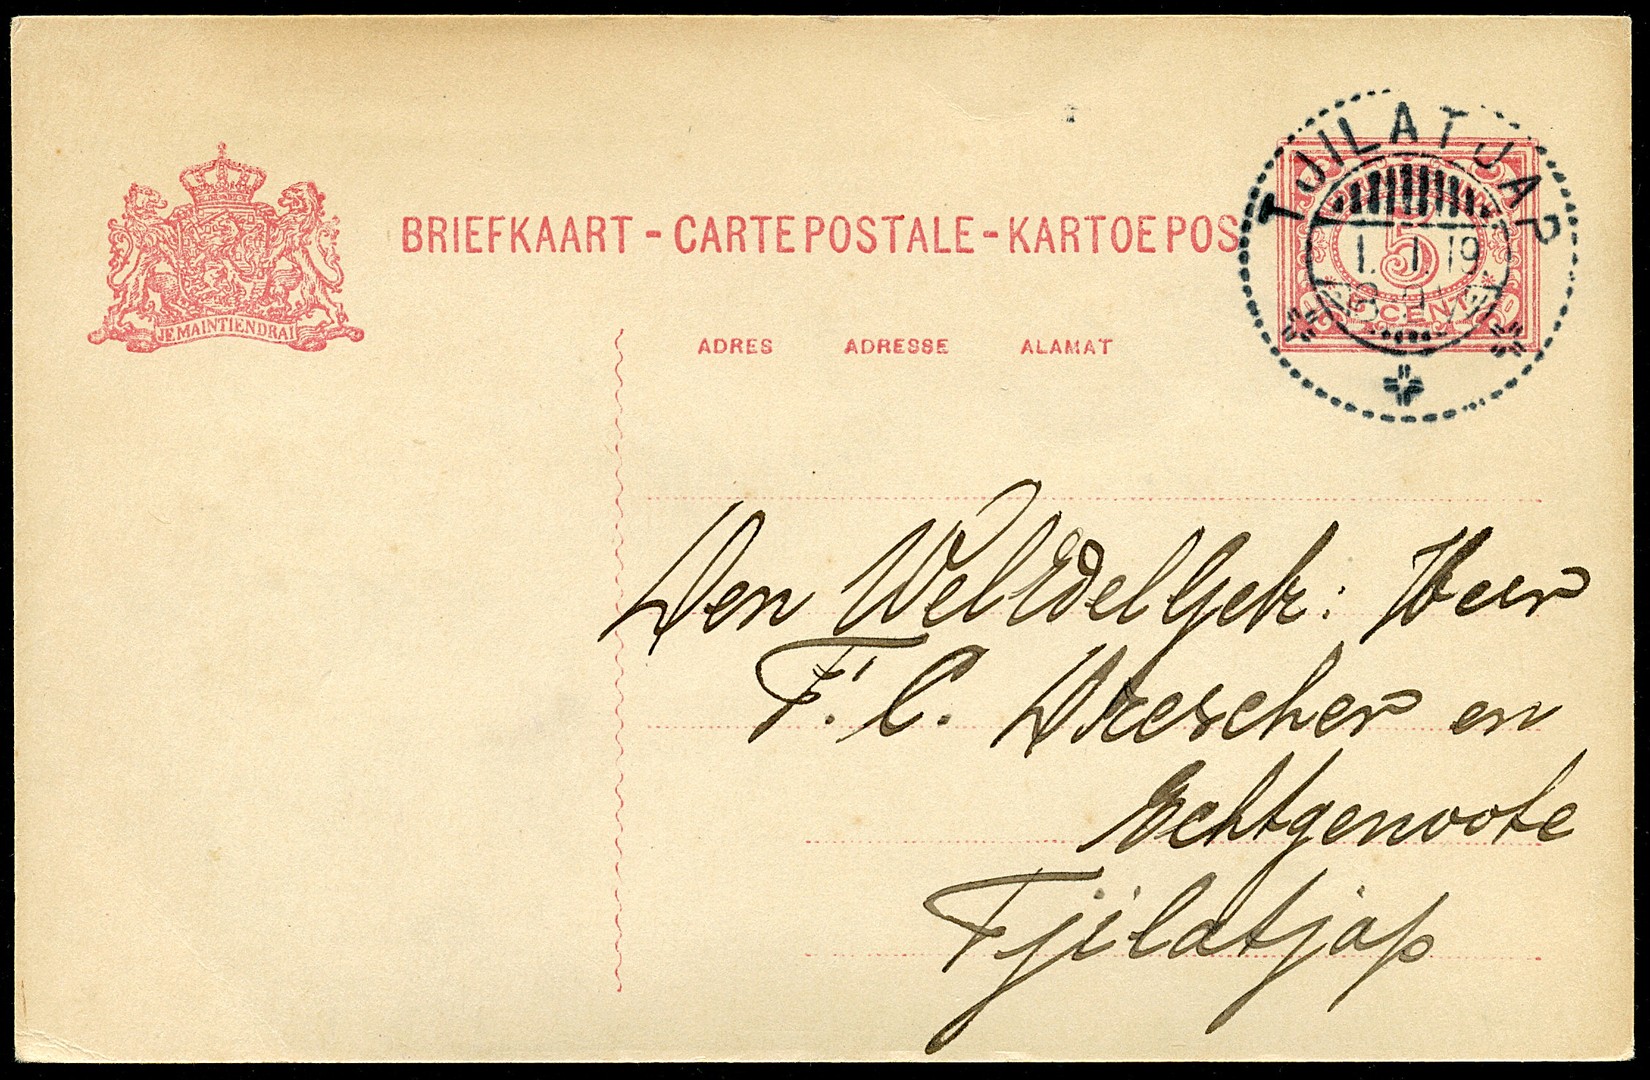 BRIEFKAART - CARTE POSTALE - KARTOEPOS
TJILATJAP
1. 1. 19
5
CENT
JE MAINTIENDRAI
ADRES ADRESSE ALAMAT
Den WelEdelGeb: Heer
F. C. Drescher en
Echtgenoote
Tjilatjap